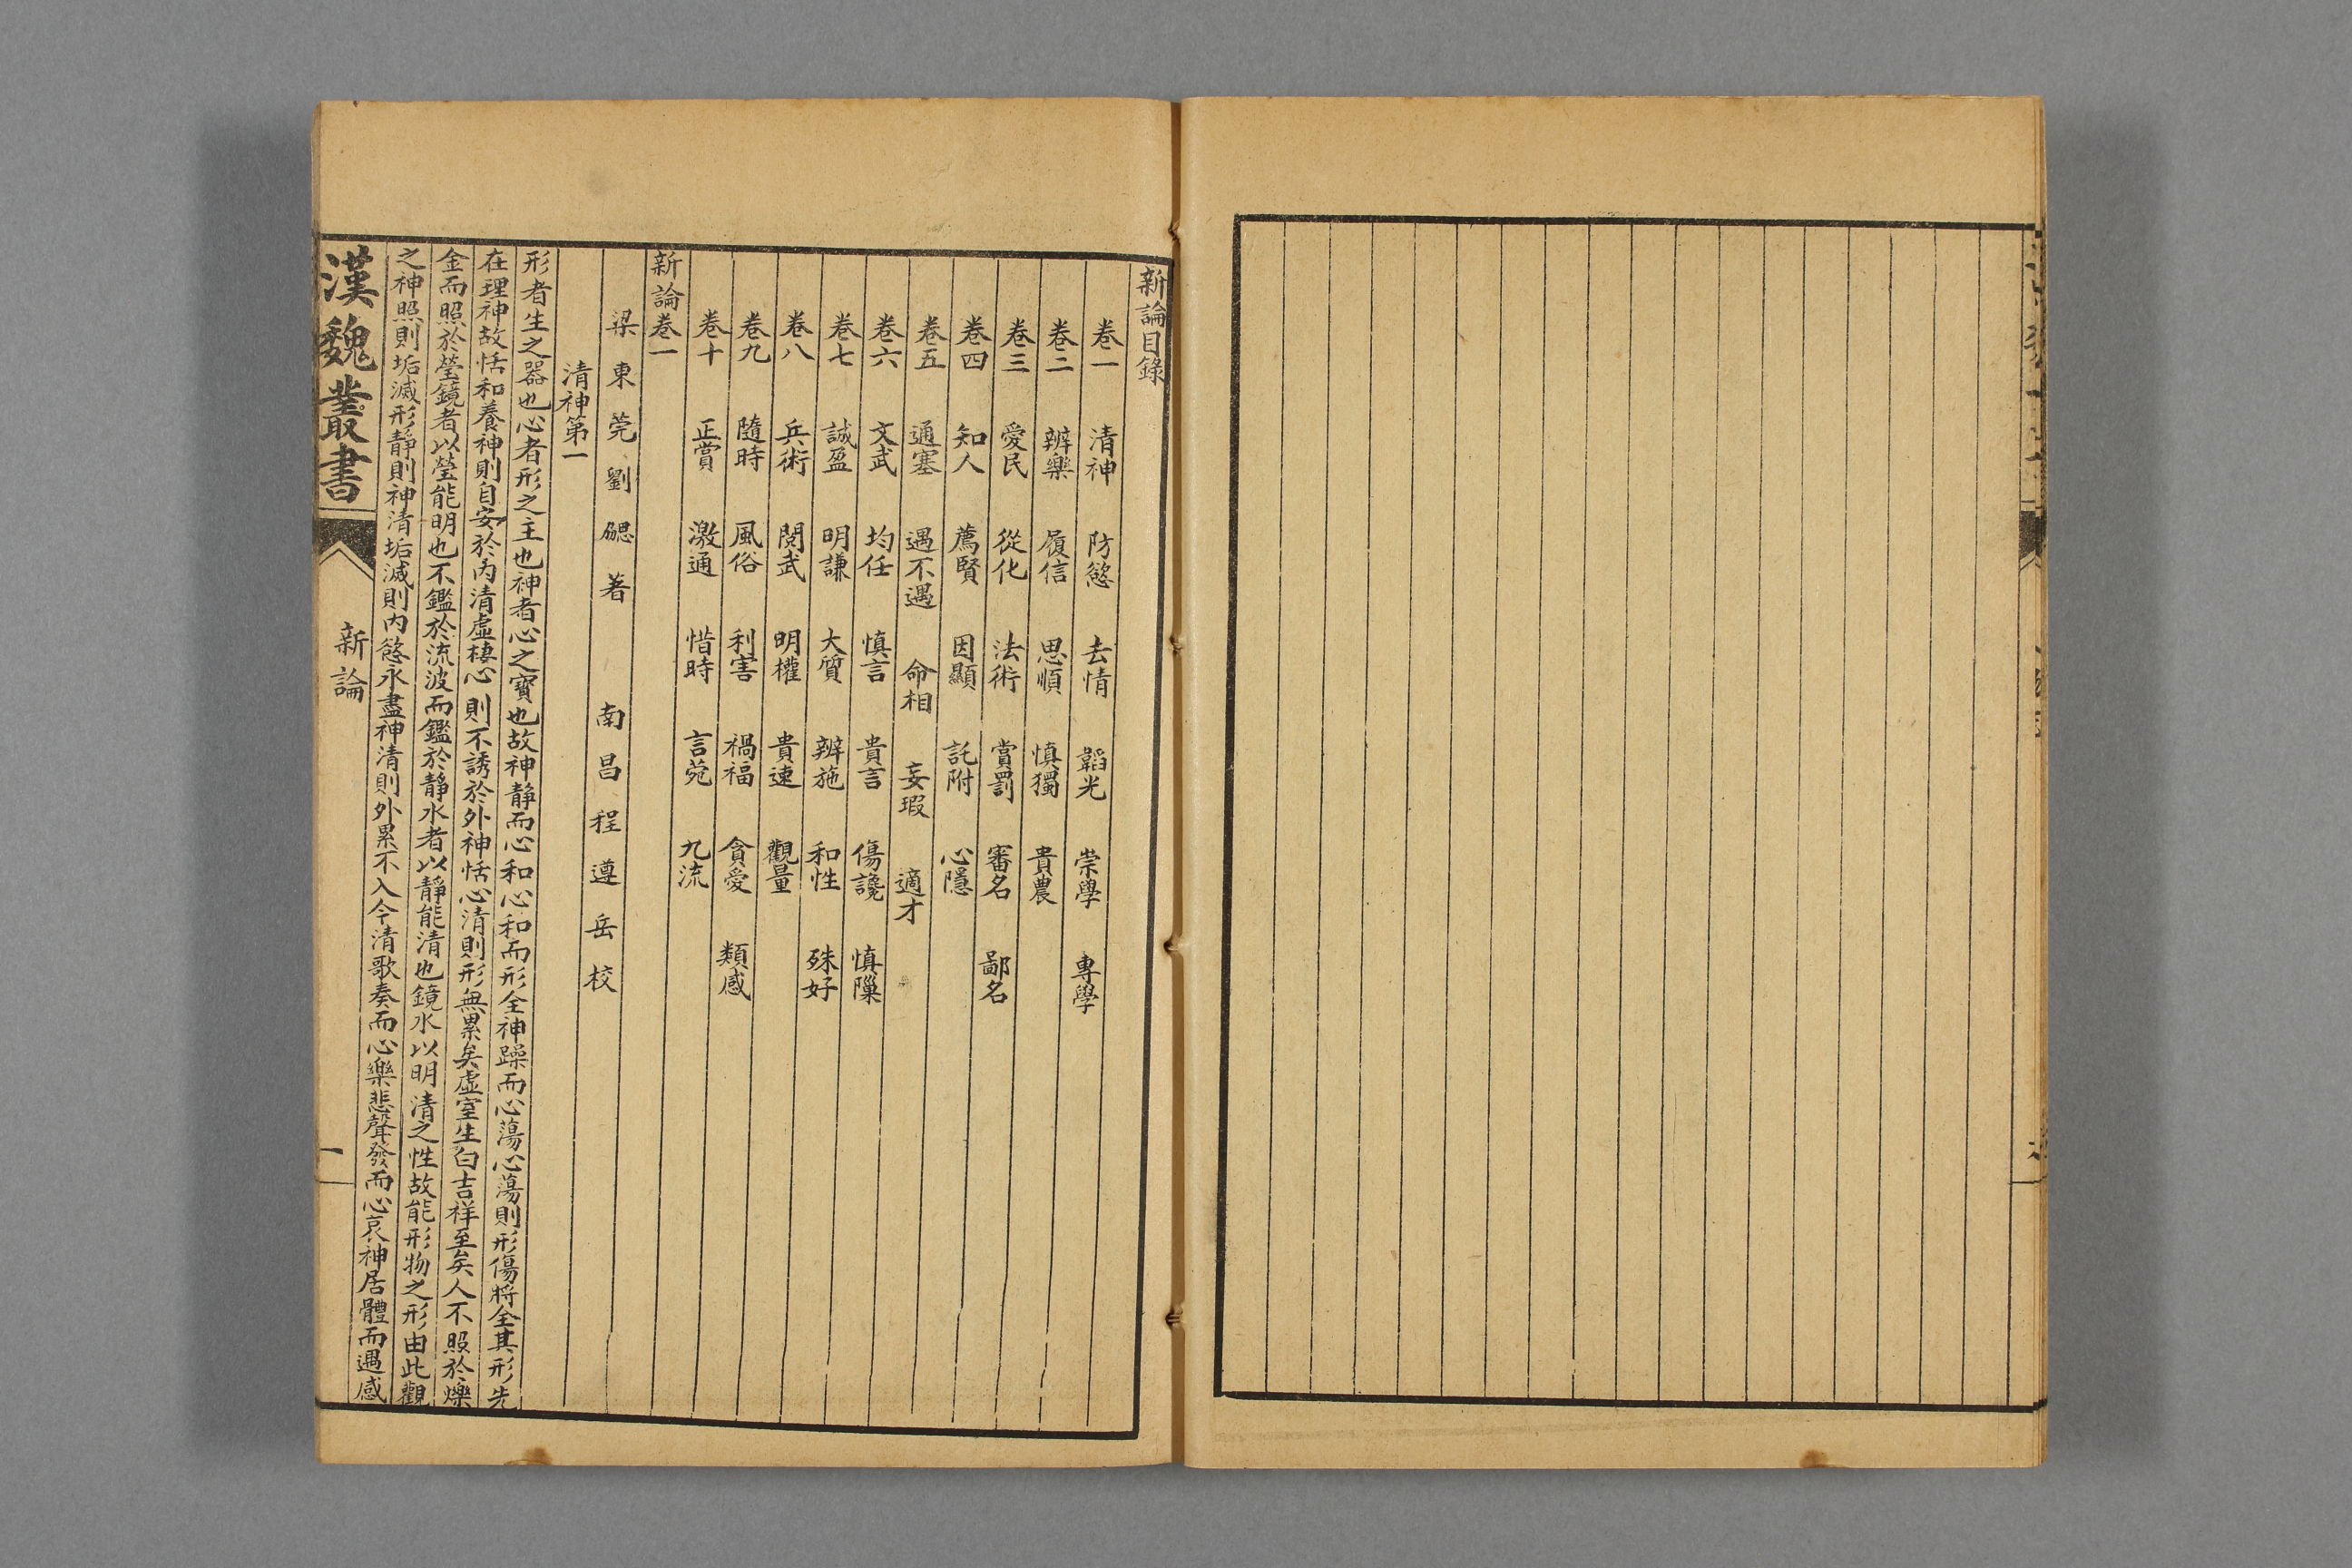 新論目錄
卷一 清神 防慾 去情 韜光 崇學 專學
卷二 辨樂 履信 思順 慎獨 貴農
卷三 愛民 從化 法術 賞罰 審名 鄙名
卷四 知人 薦賢 因顯 託附 心隱
卷五 通塞 遇不遇 命相 妄瑕 適才
卷六 文武 均任 慎言 貴言 傷讒 慎隟
卷七 誠盈 明謙 大質 辨施 和性 殊好
卷八 兵術 閱武 明權 貴速 觀量
卷九 隨時 風俗 利害 禍福 貪愛 類感
卷十 正賞 激通 惜時 言菀 九流
新論卷一
梁東莞劉勰著 南昌程遵岳校
清神第一
形者生之器也心者形之主也神者心之寶也故神靜而心和心和而形全神躁而心蕩心蕩則形傷將全其形先
在理神故恬和養神則自安於內清虛棲心則不誘於外神恬心清則形無累矣虛室生白吉祥至矣人不照於爍
金而照於瑩鏡者以瑩能明也不鑑於流波而鑑於靜水者以靜能清也鏡水以明清之性故能形物之形由此觀
之神照則垢滅形靜則神清垢滅則內慾永盡神清則外累不入今清歌奏而心樂悲聲發而心哀神居體而遇感
漢魏叢書
新論
一